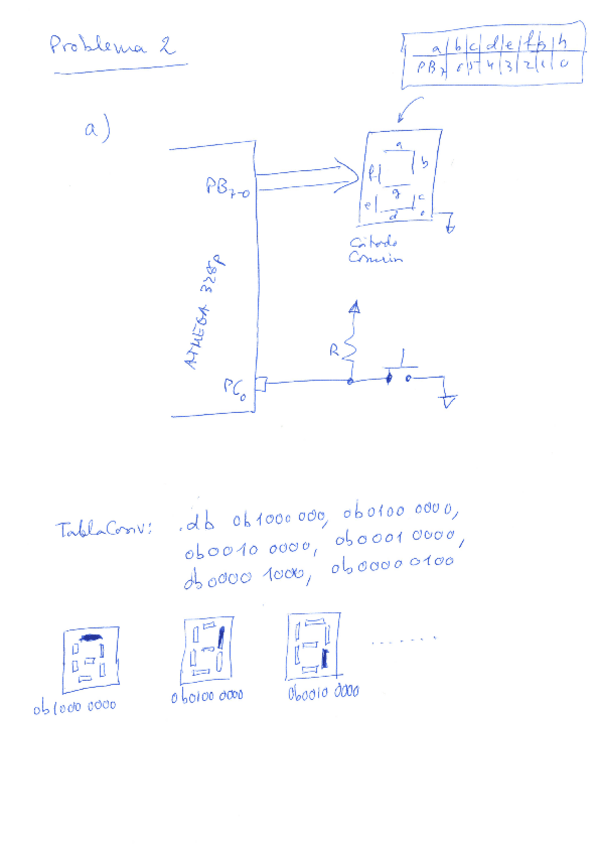 Problema 2
a b c d e f g h
PB7 6 5 4 3 2 1 0
a)
PB7-0
a
f b
g
e c
d
Cátodo
Común
ATMEGA 328p
R
PC0
TablaConv: .db 0b1000 000, 0b0100 0000,
0b0010 0000, 0b0001 0000,
0b0000 1000, 0b0000 0100
.......
0b1000 0000 0b0100 0000 0b0010 0000